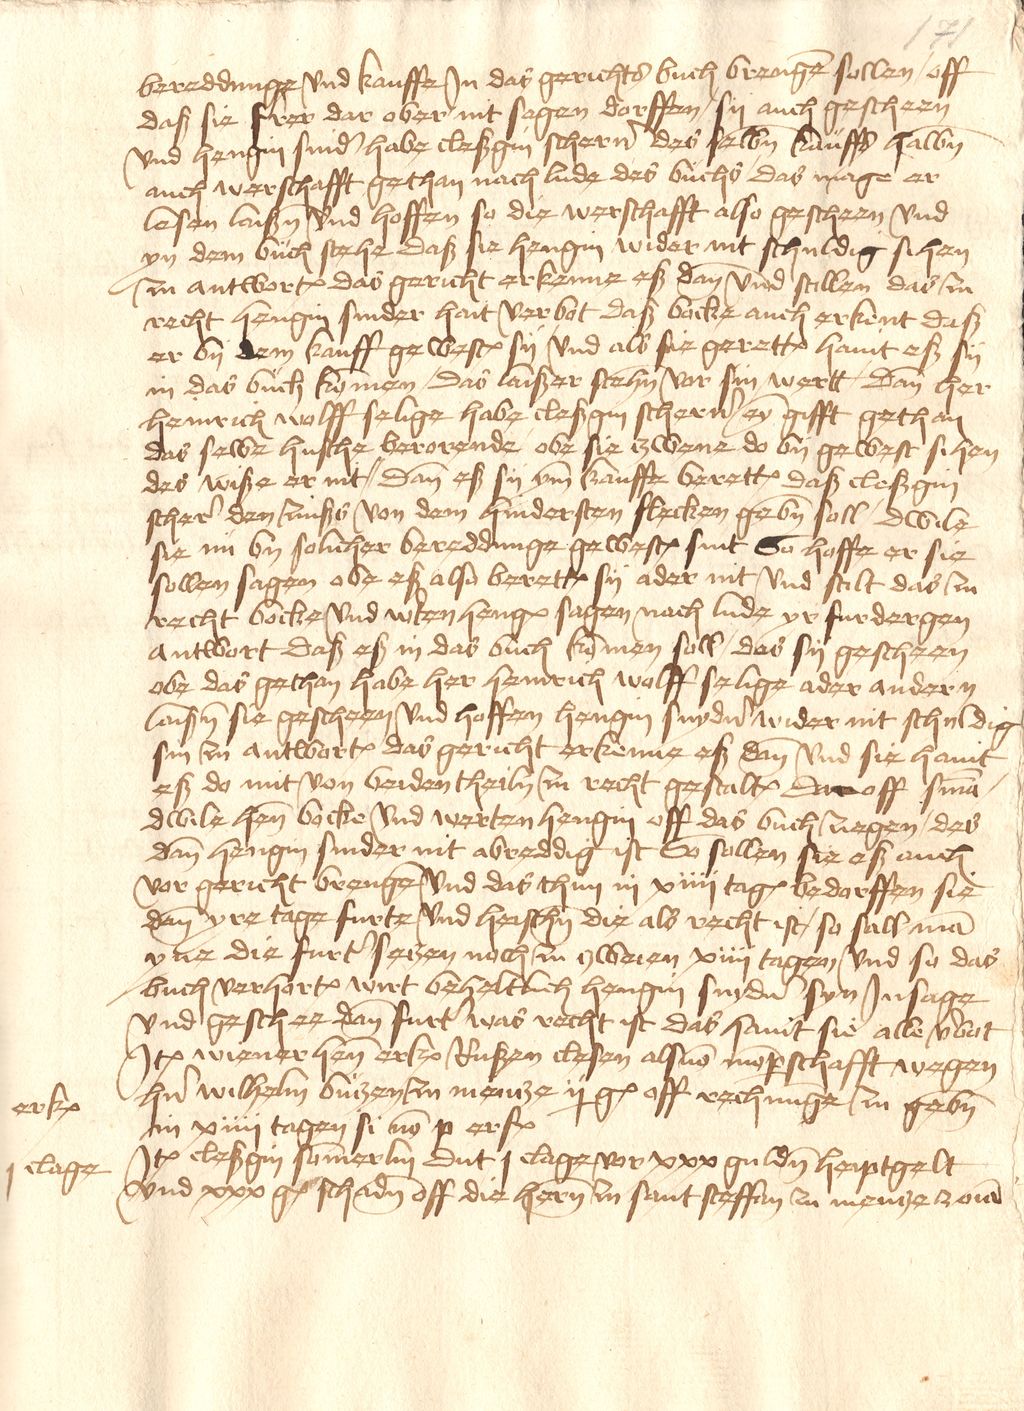 171
bereddunge und kauffe in das gerichts buch brengen sollen off
daß sie furter dar ober nit sagen dorffen sij auch gescheen
und hengin snider habe cleßgin scherer des selben kauffs halben
auch werschafft gethan nach lude des buchs das mage er
lesen laißen und hoffen so die werschafft also gescheen und
yn dem buch stehe daß sie hengin wider nit schuldig sihen
zu antworten das gericht erkenne eß dan und stillen das zu
recht hengin snider hait verbot daß bocke auch erkent daß
er bij dem kauff gewest sij und als sie gerett haint eß sij
in das buch komen das laißer stehn vor sin wertt dan her
heinrich wolff selige habe cleßgin scherer ein gifft gethan
das selbe husche berorende obe sie zwene do bij gewest sihen
des wiße er nit dan eß sij ym kauffe berett daß cleßgin
scherer den zinß von dem hindersten flecken geben soll dwile
sie nu bij solicher bereddunge gewest sint So hoffe er sie
sollen sagen obe eß also berett sij ader nit und stilt das zu
recht bocke und wertenhengin sagen nach lude yr furdergen
antwort daß eß in das buch komen soll das sij gescheen
obe das gethan habe her heinrich wolff selige ader andern
laißen sie gescheen und hoffen hengin snyder wider nit schuldig
sin zu antworten das gericht erkenne eß dan und sie haint
eß do mit von beidentheiln zu recht gestalt Dar off sententia
dwile henne bocke und wertenhengin off das buch ziegen des
dan hengin snider nit abreddig ist So sollen sie eß auch
vor gericht brengen und das thun in xiiii tagen bedorffen sie
dan yre tage furter und heischen die als recht ist so sall man
yne die furter setzen noch zu zweien xiiii tagen und so das
buch verhort wirt beheltlich hengin snyder syn insage
und geschee dan furter was recht ist das haint sie alle verbot
Item wiener henne erkent rußen clesen als von momperschafft wegen
hern wilhelm butzen zu mentze ii gulden off rechnunge zu geben
in xiiii tagen si non pfand erfolgt
erkant
Item cleßgin somerlin dut i clage vor xxx gulden heiptgelt
i clage
und xxx gulden schaden off die hern zu sant steffan zu mentze zuvor